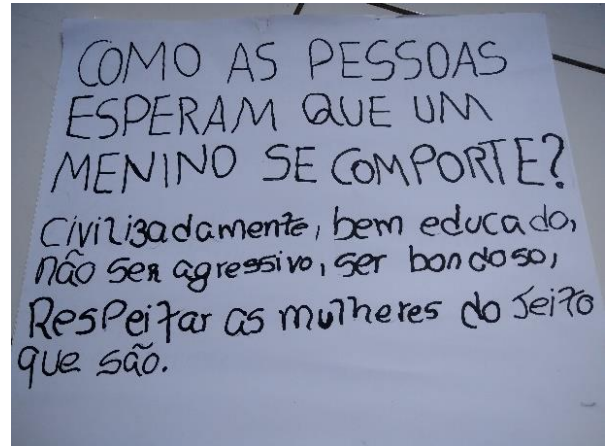 COMO AS PESSOAS
ESPERAM QUE UM
MENINO SE COMPORTE?
Civilizadamente, bem educado,
não ser agressivo, ser bondoso,
Respeitar as mulheres do Jeito
que são.